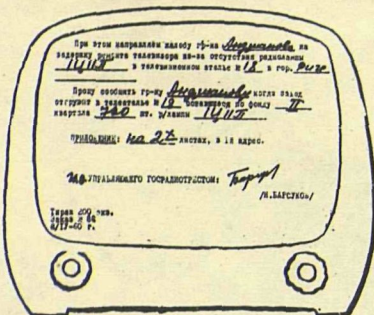 При этом направляем жалобу гр-на Андрианова на
задержку ремонта телевизора из-за отсутствия радиолампы
1Ц11П в телевизионном ателье № 18 в гор. Риге
Прошу сообщить гр-ну Андрианову когда завод
отгрузит в телеателье № 18 оставшиеся по фонду II
квартала 700 шт. р/лампы 1Ц11П
ПРИЛОЖЕНИЕ: на 2х листах, в 1й адрес.
УПРАВЛЯЮЩЕГО ГОСРАДИОТРЕСТОМ:
/И.БАРСУКОВ/
Тираж 200 экз.
Заказ № 86
8/IУ-60 г.